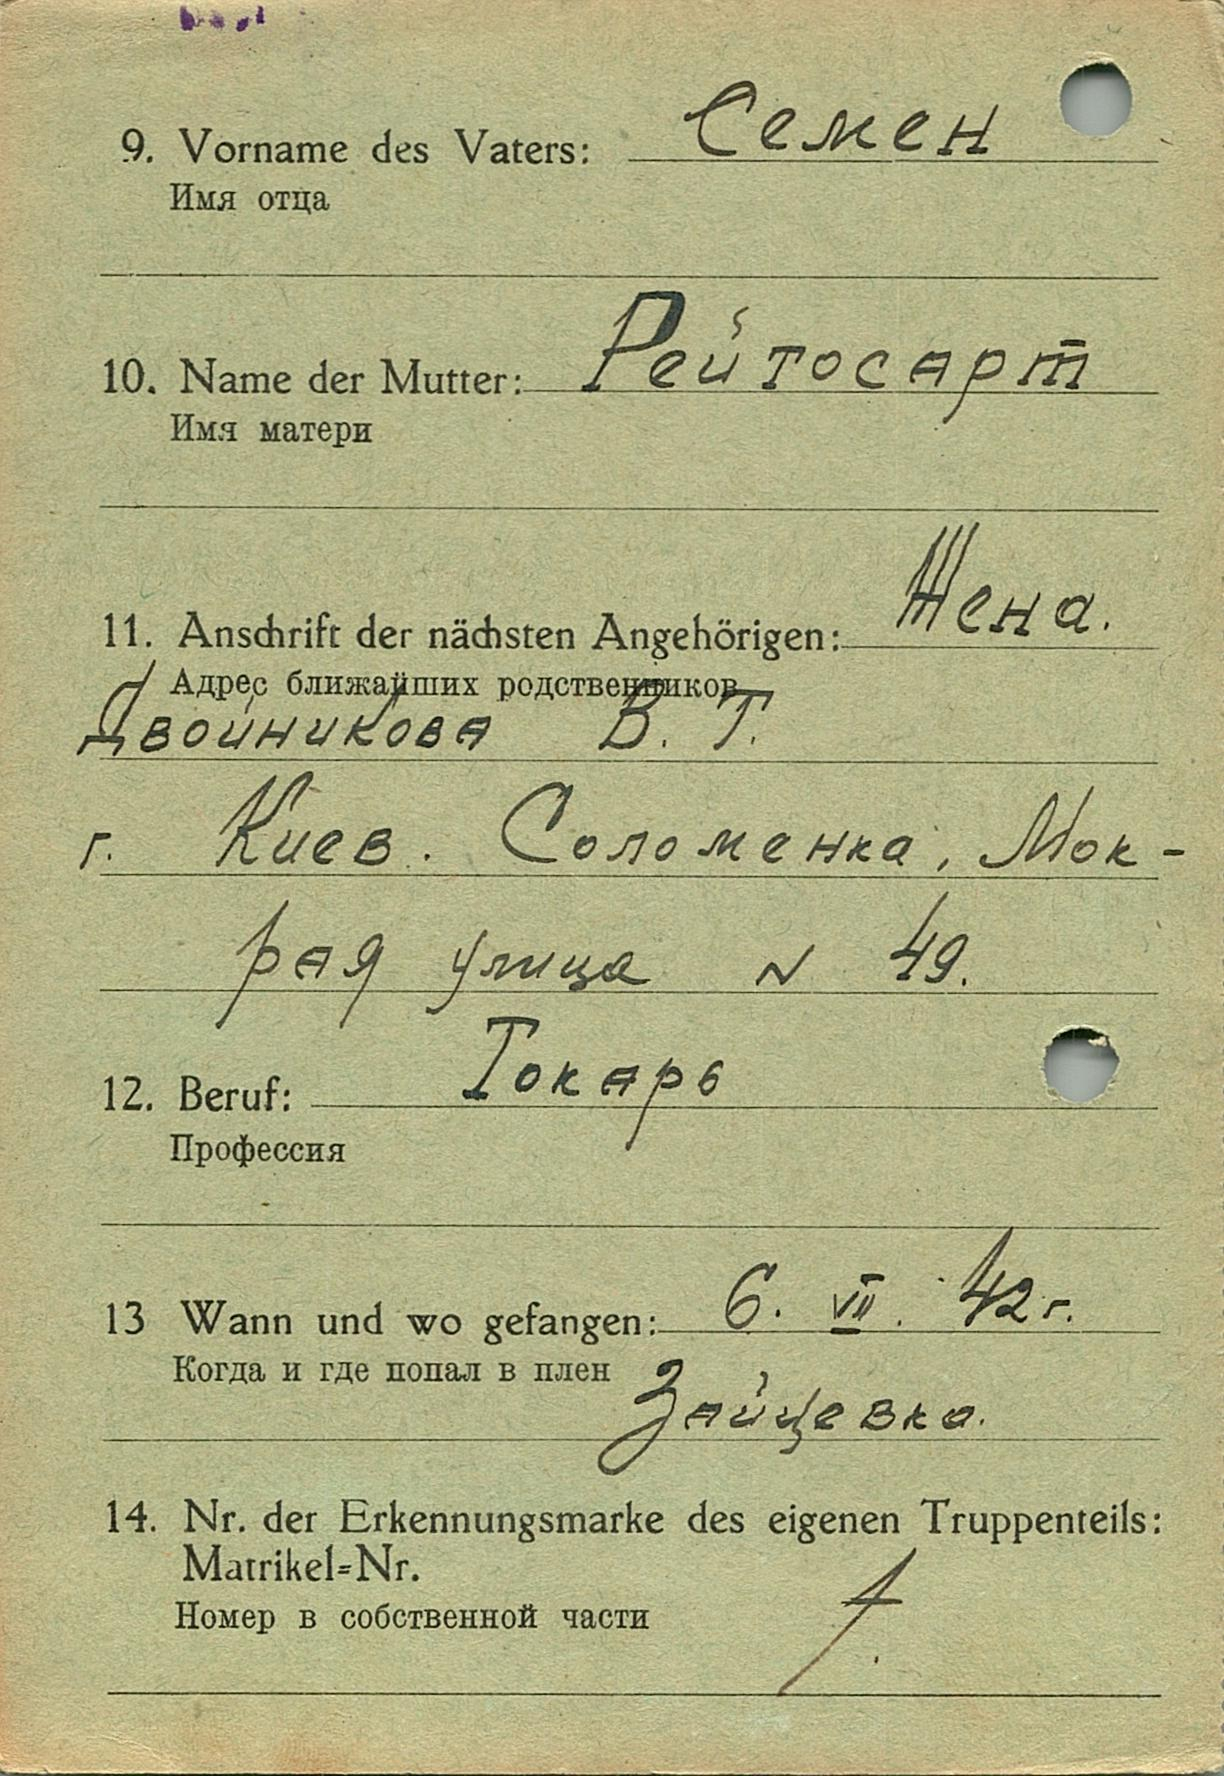 9. Vorname des Vaters: Семен
Имя отца
10. Name der Mutter: Рейтосарт
Имя матери
11. Anschrift der nächsten Angehörigen: Жена.
Адрес ближайших родственников
Двойникова В. Т.
г. Киев. Соломенка, Мок-
рая улица N 49.
12. Beruf: Токарь
Профессия
13 Wann und wo gefangen: 6. VII. 42 г.
Когда и где попал в плен
Зайцевка.
14. Nr. der Erkennungsmarke des eigenen Truppenteils:
Matrikel=Nr.
Номер в собственной части